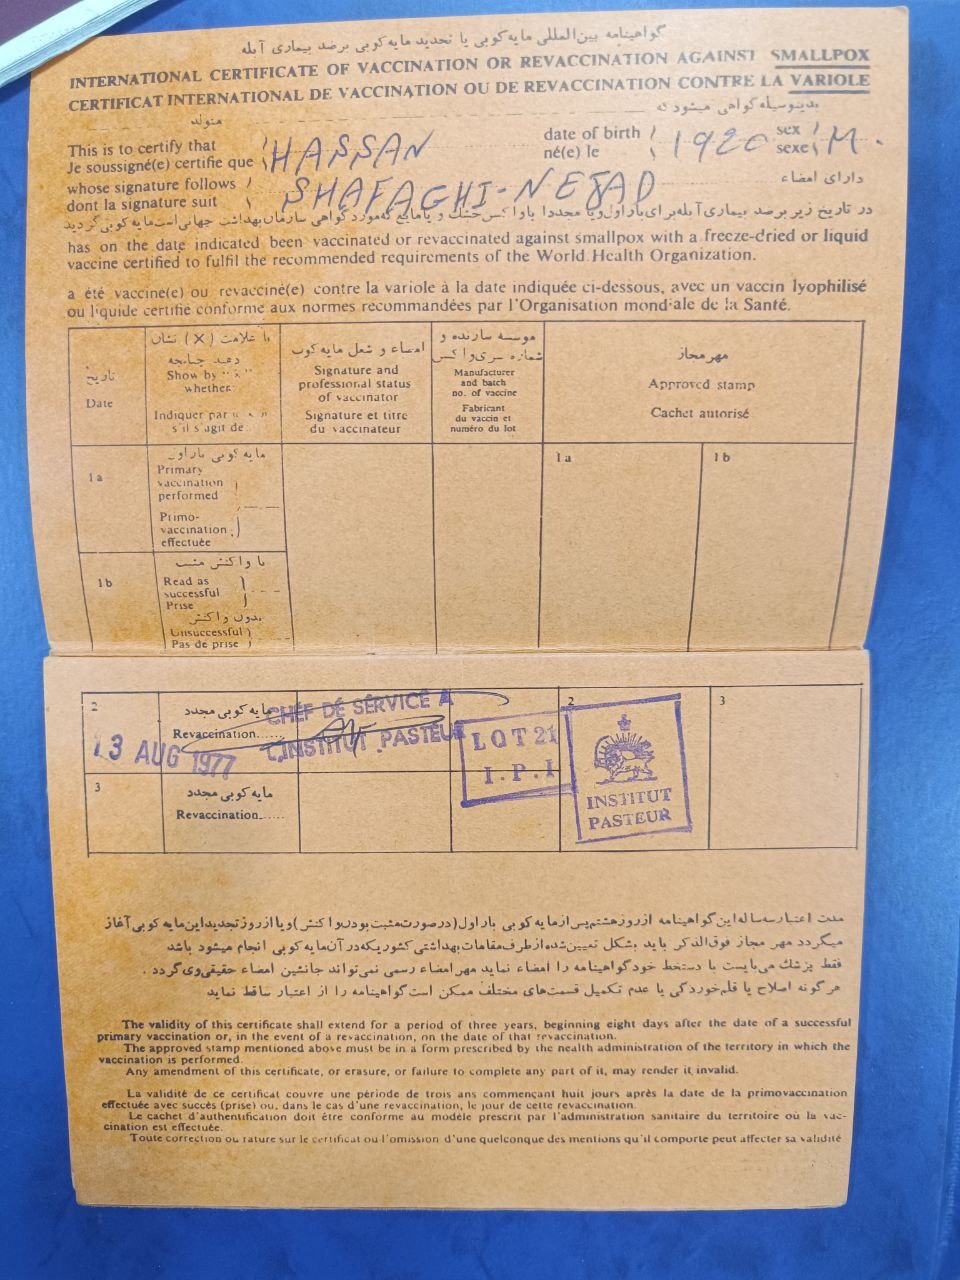 گواهینامه بین‌المللی مایه‌کوبی یا تجدید مایه‌کوبی برضد بیماری آبله
INTERNATIONAL CERTIFICATE OF VACCINATION OR REVACCINATION AGAINST SMALLPOX
CERTIFICAT INTERNATIONAL DE VACCINATION OU DE REVACCINATION CONTRE LA VARIOLE
بدینوسیله گواهی میشود که
متولد
This is to certify that
Je soussigné(e) certifie que
HASSAN
date of birth
né(e) le
1920
sex
sexe
M.
whose signature follows
dont la signature suit
SHAFAGHI-NEJAD
دارای امضاء
در تاریخ زیر برضد بیماری آبله برای بار اول و یا مجددا با واکسن خشک و یا مایع که مورد گواهی سازمان بهداشت جهانی است مایه کوبی گردید
has on the date indicated been vaccinated or revaccinated against smallpox with a freeze-dried or liquid
vaccine certified to fulfil the recommended requirements of the World Health Organization.
a été vacciné(e) ou revacciné(e) contre la variole à la date indiquée ci-dessous, avec un vaccin lyophilisé
ou liquide certifié conforme aux normes recommandées par l'Organisation mondiale de la Santé.
تاریخ
Date
با علامت (X) نشان
دهید چنانچه
Show by "x"
whether:
Indiquer par "x"
s'il s'agit de:
امضاء و شغل مایه کوب
Signature and
professional status
of vaccinator
Signature et titre
du vaccinateur
موسسه سازنده و
شماره سری واکسن
Manufacturer
and batch
no. of vaccine
Fabricant
du vaccin et
numéro du lot
مهر مجاز
Approved stamp
Cachet autorisé
1a
مایه کوبی بار اول
Primary
vaccination
performed
Primo-
vaccination
effectuée
1a
1b
1b
با واکنش مثبت
Read as
successful
Prise
بدون واکنش
Unsuccessful
Pas de prise
2
مایه کوبی مجدد
Revaccination......
13 AUG 1977
CHEF DE SERVICE A
L'INSTITUT PASTEUR
LOT 21
I.P.I
2
INSTITUT
PASTEUR
3
3
مایه کوبی مجدد
Revaccination......
مدت اعتبار سه ساله این گواهینامه از روز هشتم پس از مایه کوبی بار اول (در صورت مثبت بودن واکنش) و یا از روز تجدید این مایه کوبی آغاز
میگردد مهر مجاز فوق‌الذکر باید بشکل تعیین شده از طرف مقامات بهداشتی کشوریکه در آن مایه کوبی انجام میشود باشد
فقط پزشک می‌بایست با دستخط خود گواهینامه را امضاء نماید مهر امضاء رسمی نمی‌تواند جانشین امضاء حقیقی وی گردد .
هر گونه اصلاح یا قلم‌خوردگی یا عدم تکمیل قسمت‌های مختلف ممکن است گواهینامه را از اعتبار ساقط نماید
The validity of this certificate shall extend for a period of three years, beginning eight days after the date of a successful
primary vaccination or, in the event of a revaccination, on the date of that revaccination.
The approved stamp mentioned above must be in a form prescribed by the health administration of the territory in which the
vaccination is performed.
Any amendment of this certificate, or erasure, or failure to complete any part of it, may render it invalid.
La validité de ce certificat couvre une période de trois ans commençant huit jours après la date de la primovaccination
effectuée avec succès (prise) ou, dans le cas d'une revaccination, le jour de cette revaccination.
Le cachet d'authentification doit être conforme au modèle prescrit par l'administration sanitaire du territoire où la vac-
cination est effectuée.
Toute correction ou rature sur le certificat ou l'omission d'une quelconque des mentions qu'il comporte peut affecter sa validité